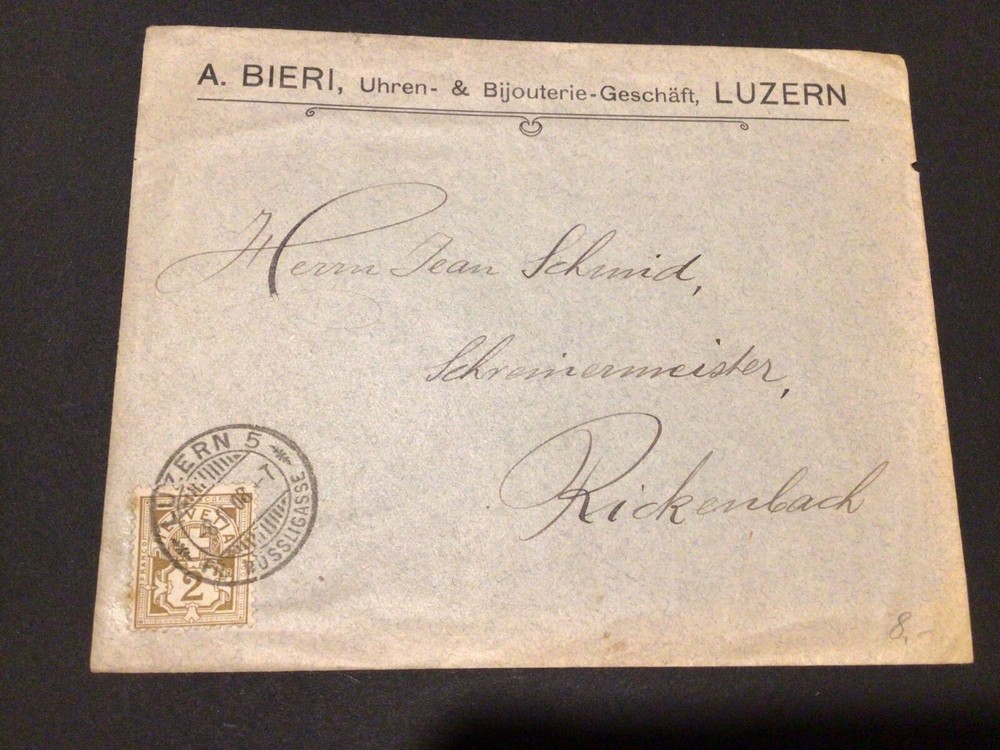 A. BIERI, Uhren- & Bijouterie-Geschäft, LUZERN
Herrn Jean Schmid,
Schreinermeister,
Rickenbach
LUZERN 5
RÖSSLIGASSE
FRANCO
2
8,-